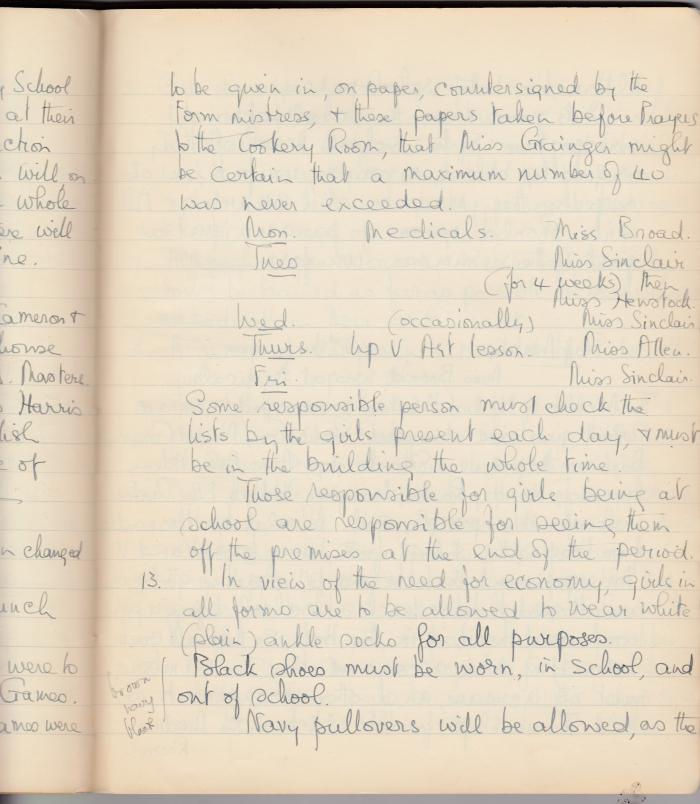 y School
at their
ction
will on
whole
ere will
ne.
Cameron &
house
Masters.
s Harris
lish
e of
n changed
unch
were to
Games.
ames were
to be given in, on paper, countersigned by the
Form mistress, & these papers taken before Prayers
to the Cookery Room, that Miss Grainger might
be certain that a maximum number of 40
was never exceeded.
Mon. Medicals. Miss Broad.
Tues Miss Sinclair
(for 4 weeks) then
Miss Henstock
Wed. (occasionally) Miss Sinclair
Thurs. Up V Art lesson. Miss Allen.
Fri. Miss Sinclair.
Some responsible person must check the
lists by the girls present each day, & must
be in the building the whole time.
Those responsible for girls being at
school are responsible for seeing them
off the premises at the end of the period.
13. In view of the need for economy, girls in
all forms are to be allowed to wear white
(plain) ankle socks for all purposes.
Black shoes must be worn, in School, and
out of school.
brown
navy
black
Navy pullovers will be allowed, as the